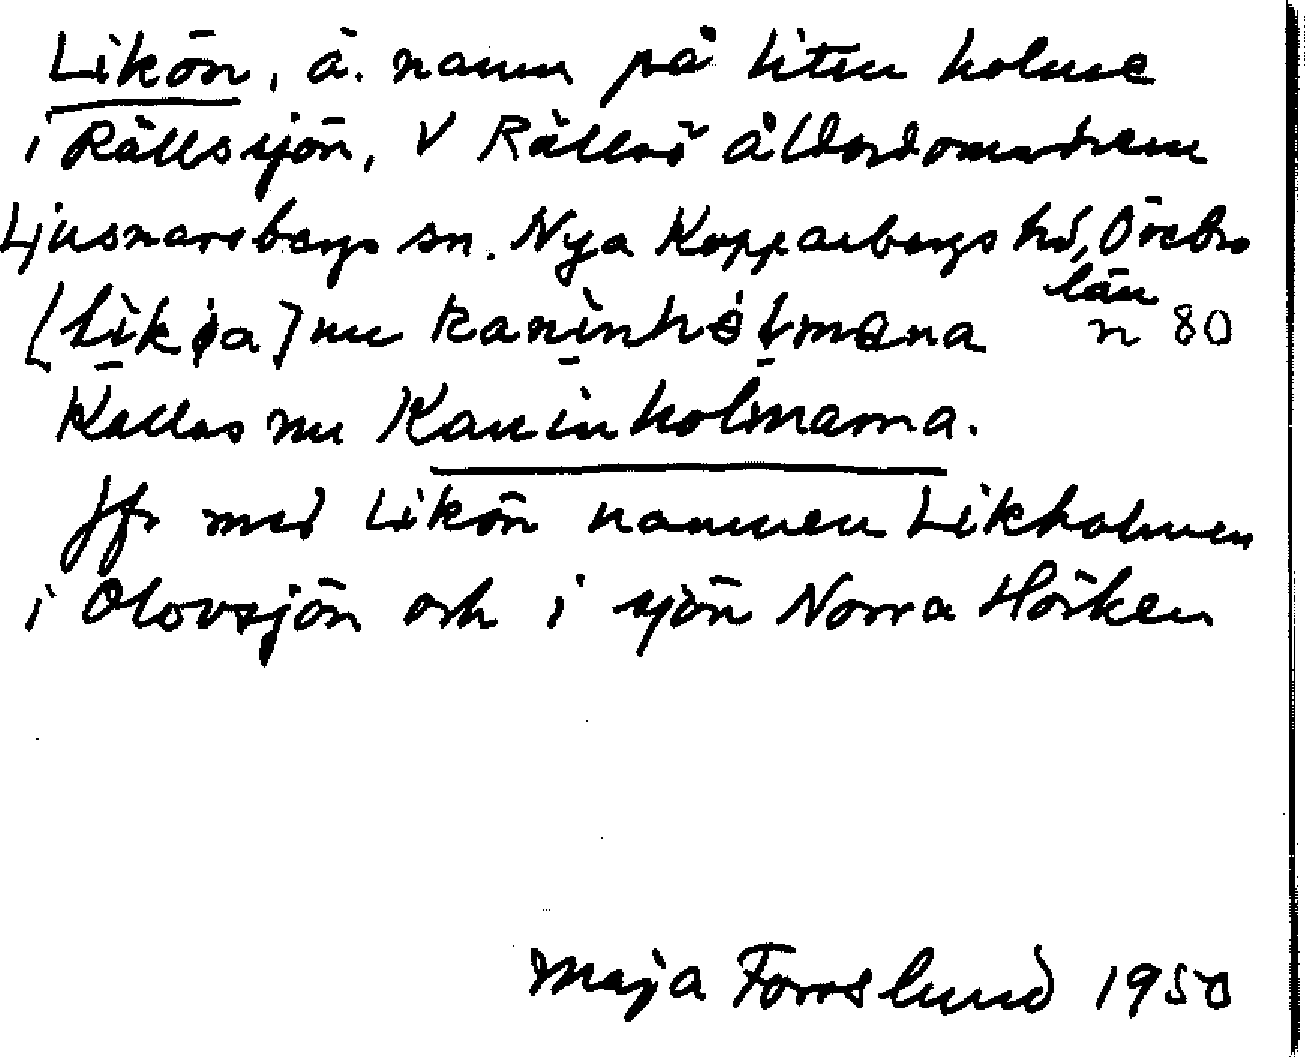 Likön, ä. namn på liten holme
i Rällssjön, V Rällsö ålderdomshem
Ljusnarsbergs sn. Nya Kopparbergs hd, Örebro
län
[likøa] nu kaninhólmana n 80
Kallas nu Kaninholmarna.
Jfr med Likön namnen Likholmen
i Olovsjön och i sjön Norra Hörken
Maja Forsslund 1950